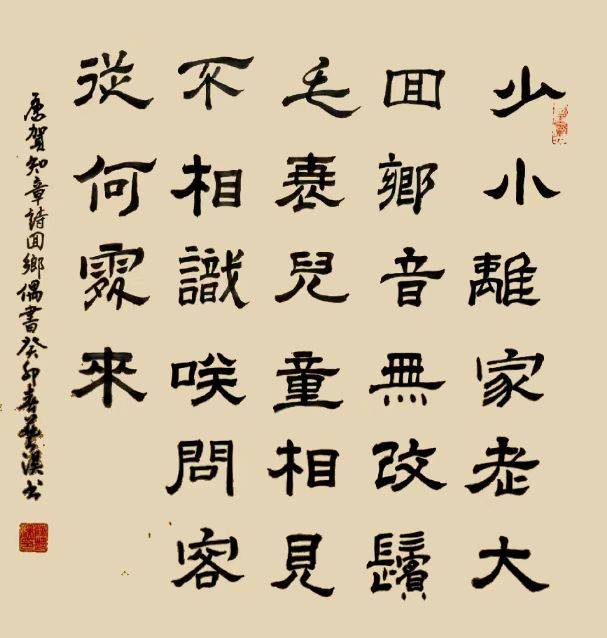 少小離家老大
囬鄉音無改鬢
毛衰兒童相見
不相識咲問客
從何處來
唐賀知章詩囬鄉偶書癸卯春書